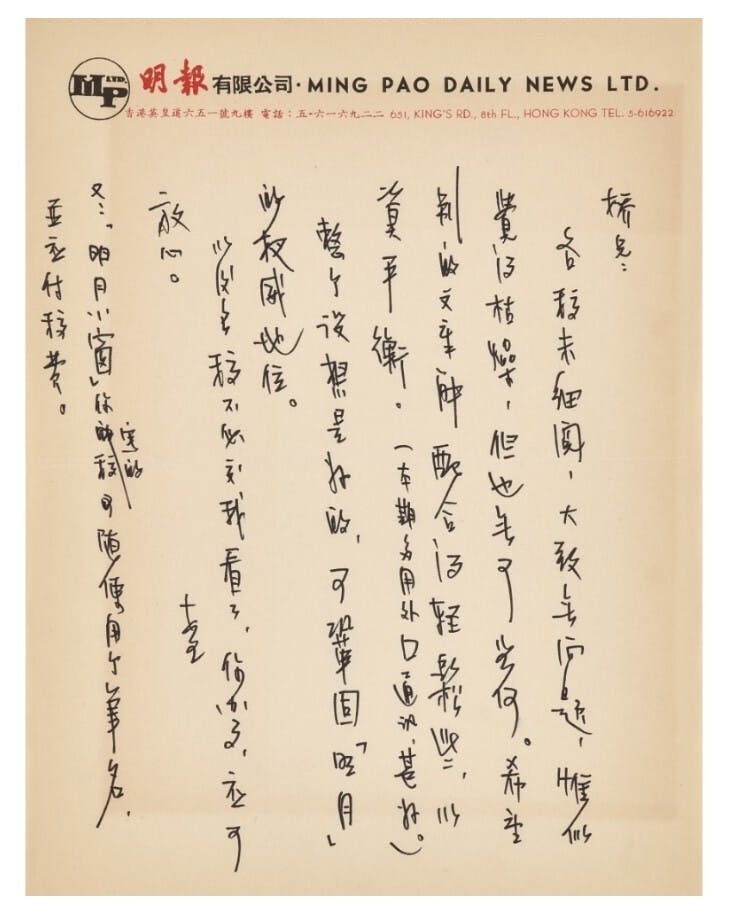 MP LTD.
明報有限公司·MING PAO DAILY NEWS LTD.
香港英皇道六五一號九樓 電話：五·六一六九二二 651, KING'S RD., 8th FL., HONG KONG TEL. 5-616922
橋兄：
各稿未細閱，大致無問題，惟似
覺得枯燥，但也無可奈何。希望
別的文章能配合得輕鬆些，以
資平衡。（本期多用外囗通訊，甚好。）
整个設想是好的，可鞏固「明月」
的权威地位。
以後各稿不必交我看了，你办事，应可
放心。
又：「明月小窗」你寫的稿可随便用个筆名，
並应付稿費。